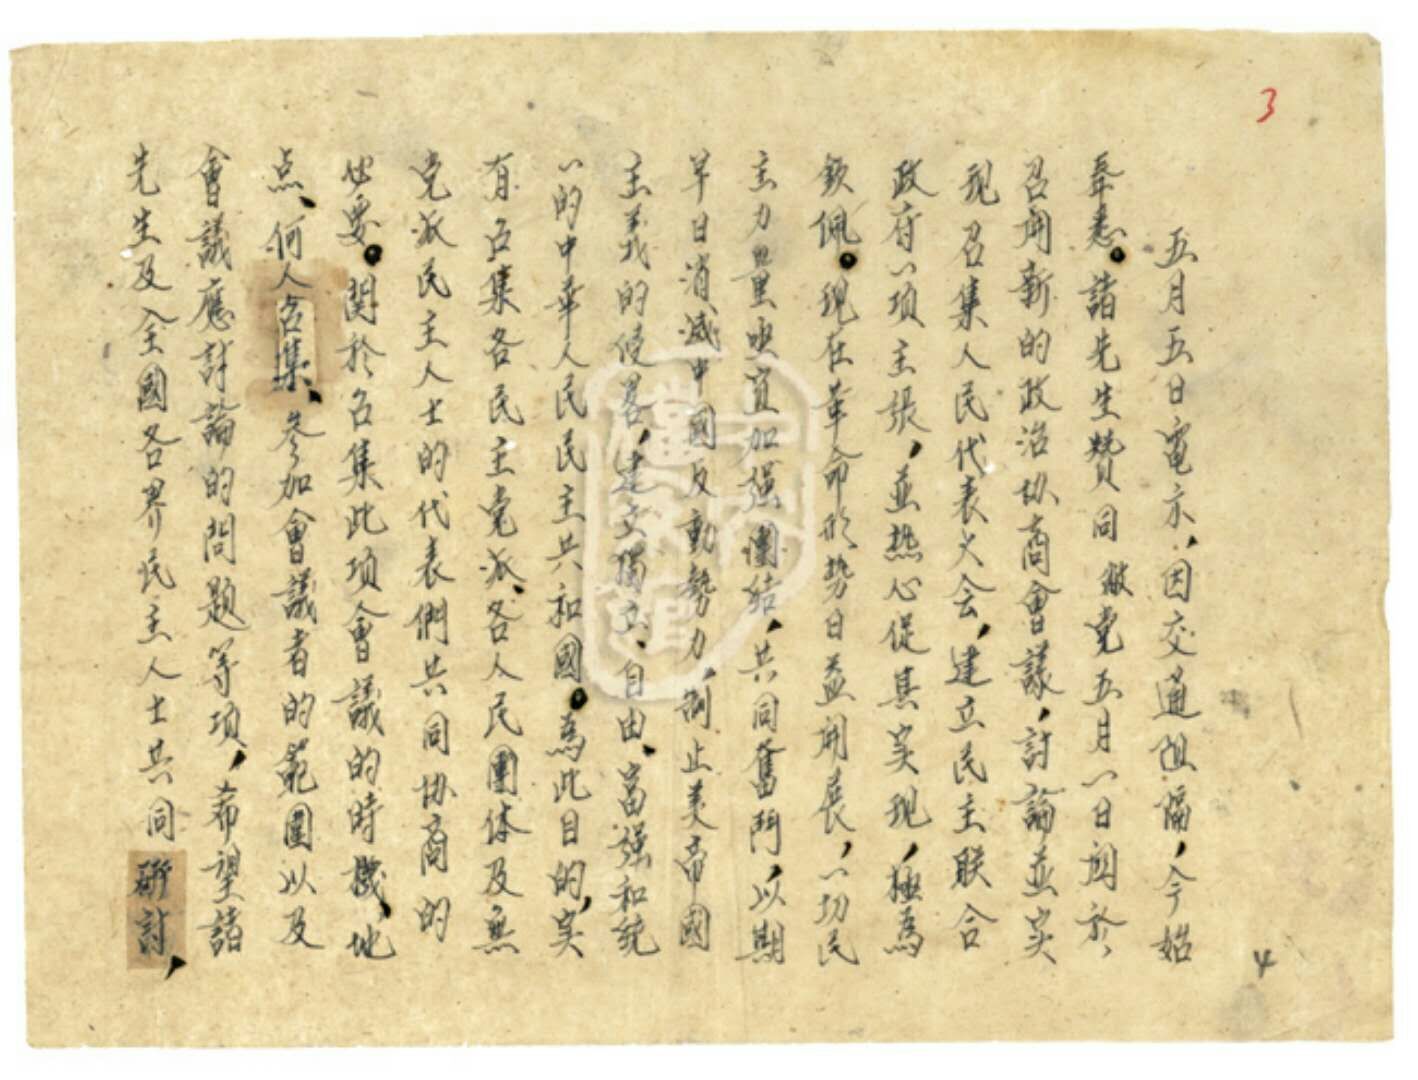 3
五月五日電示，因交通阻隔，今始
奉悉。諸先生贊同敝党五月一日関於
召開新的政治協商會議，討論並实
現召集人民代表大会，建立民主联合
政府一項主張，並热心促其实現，極為
欽佩。現在革命形势日益開展，一切民
主力量亟宜加强團結，共同奮鬥，以期
早日消滅中國反動勢力，制止美帝國
主義的侵畧，建立獨立、自由、富强和統
一的中華人民民主共和國。為此目的，实
有召集各民主党派、各人民團体及無
党派民主人士的代表們共同协商的
必要。関於召集此项會議的時機、地
点、何人召集、参加會議者的範圍以及
會議應討論的問題等項，希望諸
先生及全國各界民主人士共同研討，
4